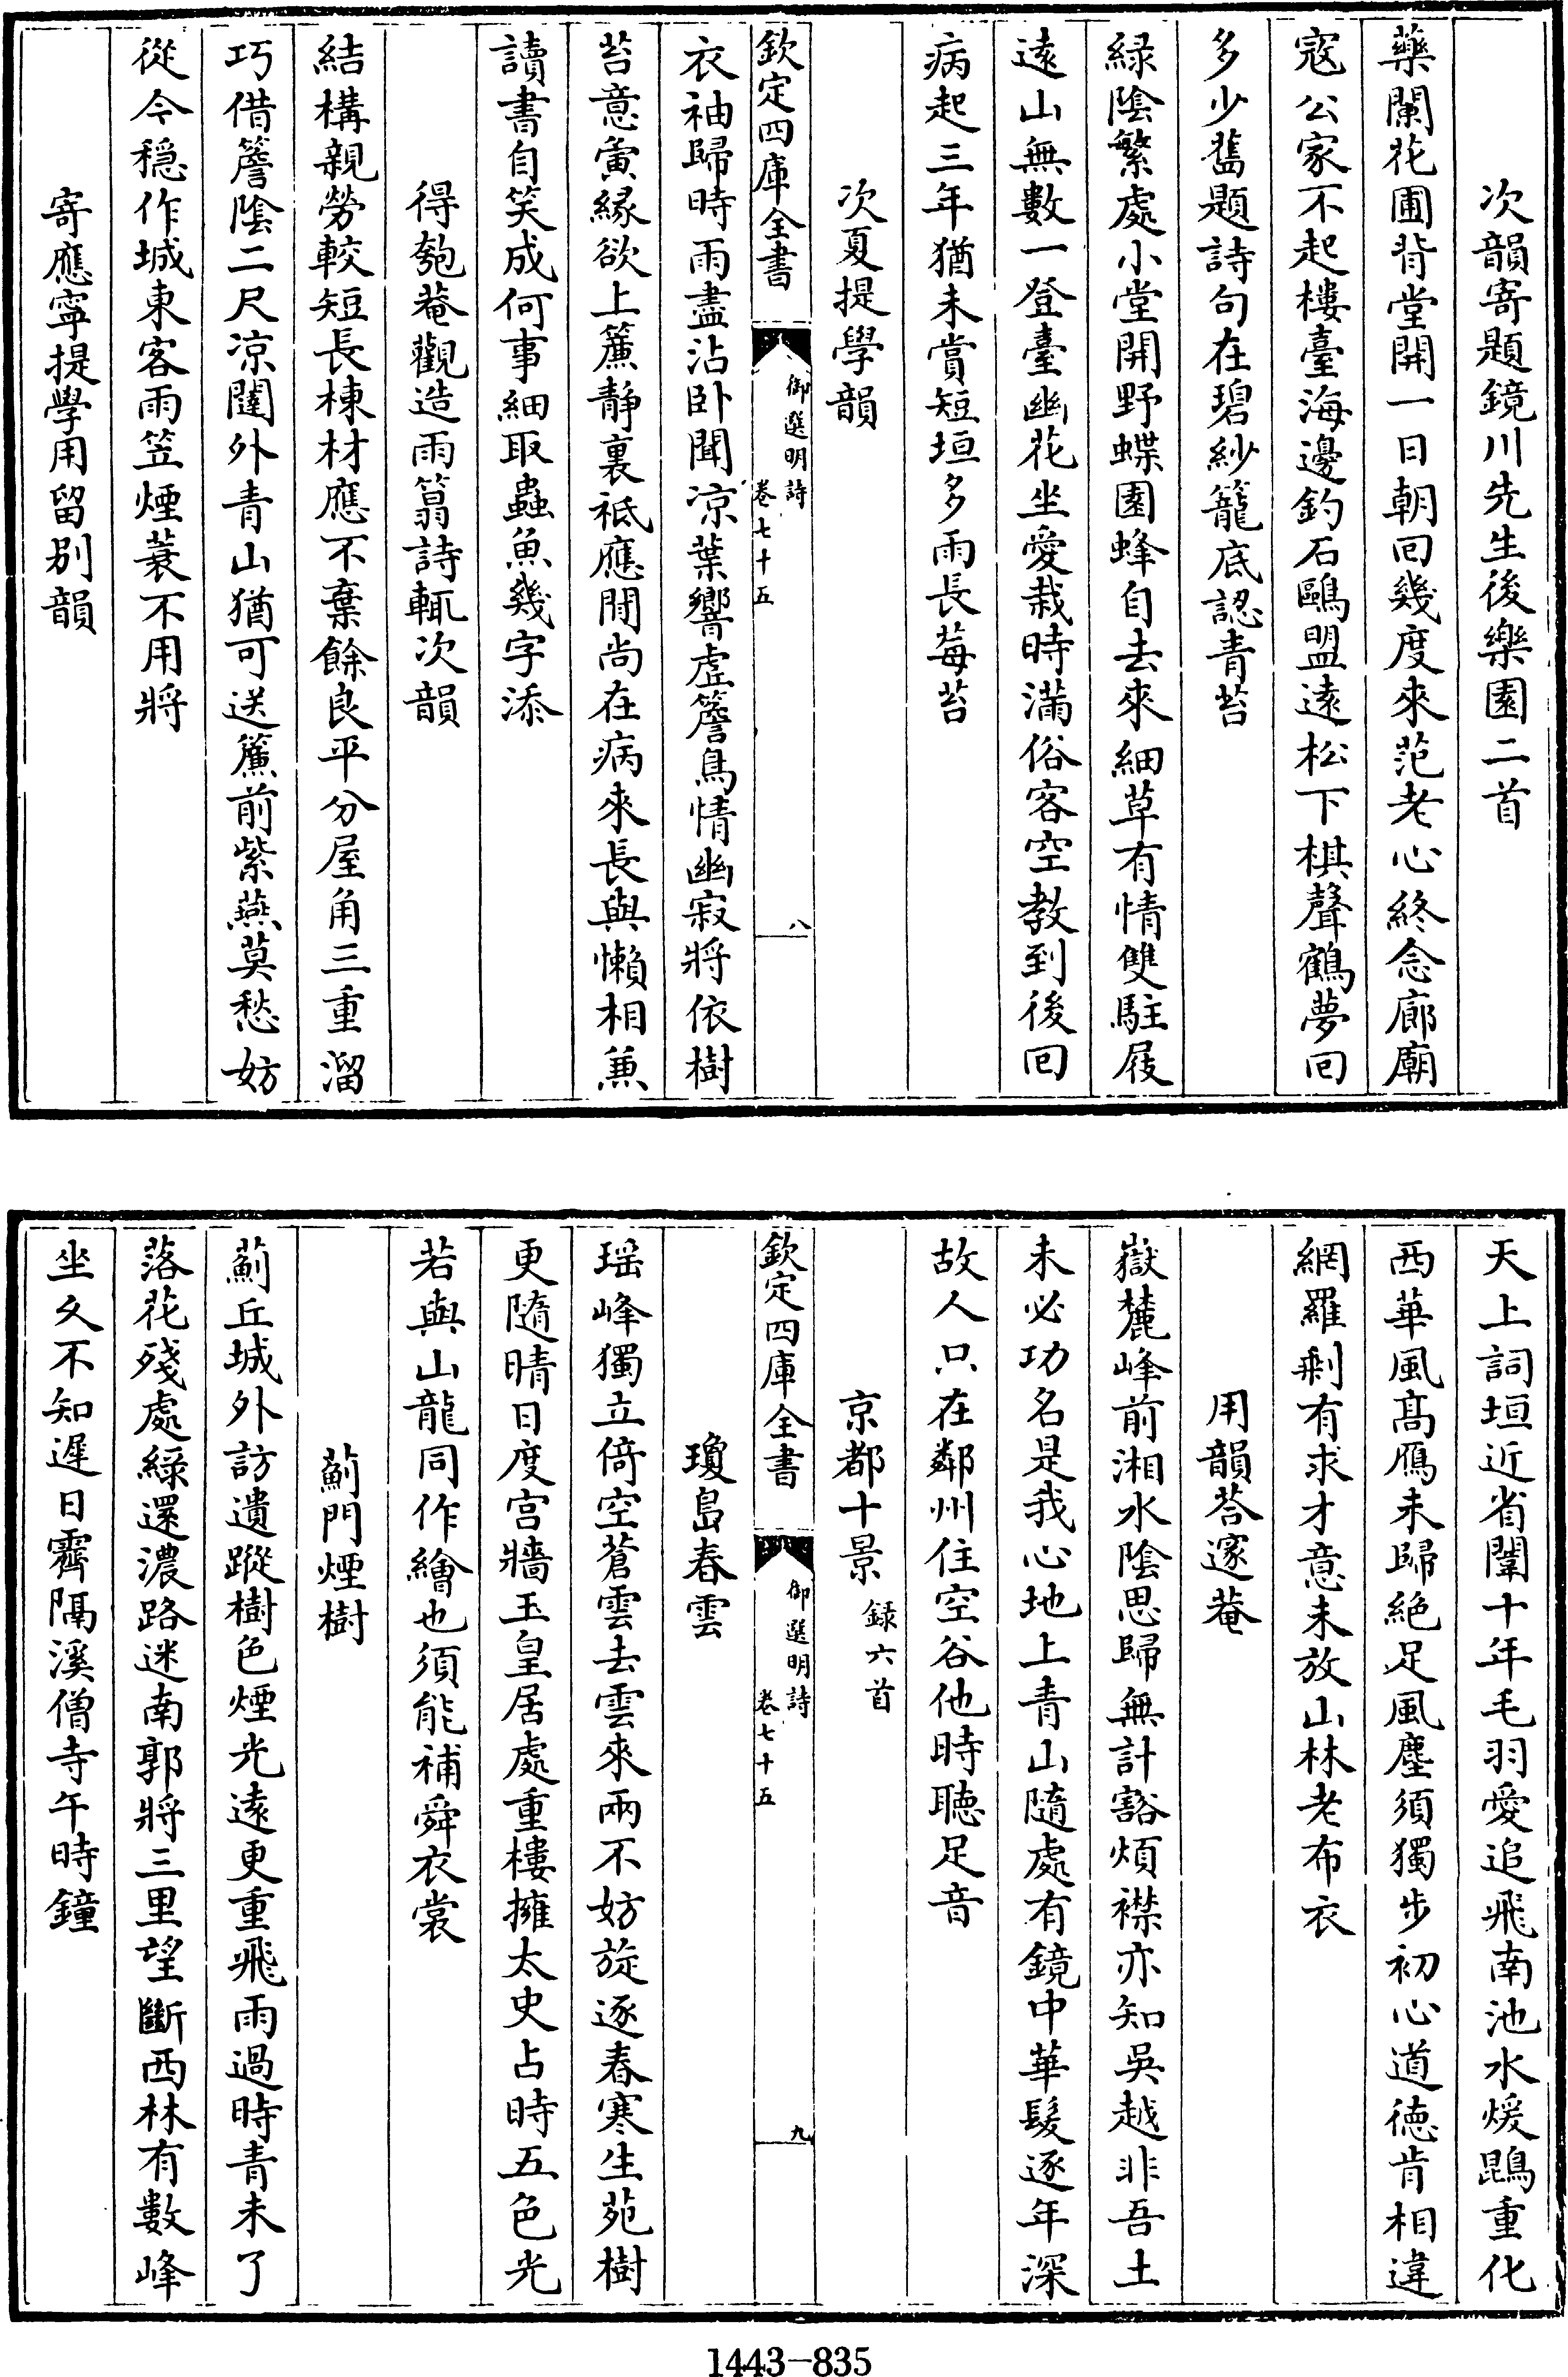 次韻寄題鏡川先生後樂園二首
藥闌花圃背堂開一日朝回幾度來范老心終念廊廟
寇公家不起樓臺海邊釣石鷗盟遠松下棋聲鶴夢回
多少舊題詩句在碧紗籠底認青苔
綠陰繁處小堂開野蝶園蜂自去來細草有情雙駐屐
遠山無數一登臺幽花坐愛栽時滿俗客空教到後回
病起三年猶未賞短垣多雨長莓苔
次夏提學韻
欽定四庫全書
御選明詩
卷七十五
八
衣袖歸時雨盡沾卧聞凉葉響虛簷鳥情幽寂將依樹
苔意夤緣欲上簾靜裏祗應閒尚在病來長與懶相兼
讀書自笑成何事細取蟲魚幾字添
得匏菴觀造雨篛詩輒次韻
結構親勞較短長棟材應不棄餘良平分屋角三重溜
巧借簷陰二尺凉闥外青山猶可送簾前紫燕莫愁妨
從今穩作城東客雨笠煙蓑不用將
寄應寧提學用留别韻
天上詞垣近省闈十年毛羽愛追飛南池水煖鵾重化
西華風髙鴈未歸絕足風塵須獨步初心道德肯相違
網羅剩有求才意未放山林老布衣
用韻荅邃菴
嶽麓峰前湘水陰思歸無計豁煩襟亦知吳越非吾土
未必功名是我心地上青山隨處有鏡中華髮逐年深
故人只在鄰州住空谷他時聽足音
京都十景録六首
欽定四庫全書
御選明詩
卷七十五
九
瓊島春雲
瑶峰獨立倚空蒼雲去雲來兩不妨旋逐春寒生苑樹
更隨晴日度宮牆玉皇居處重樓擁太史占時五色光
若與山龍同作繪也須能補舜衣裳
薊門煙樹
薊丘城外訪遺蹤樹色煙光遠更重飛雨過時青未了
落花殘處綠還濃路迷南郭將三里望斷西林有數峰
坐久不知遲日霽隔溪僧寺午時鐘
1443-835